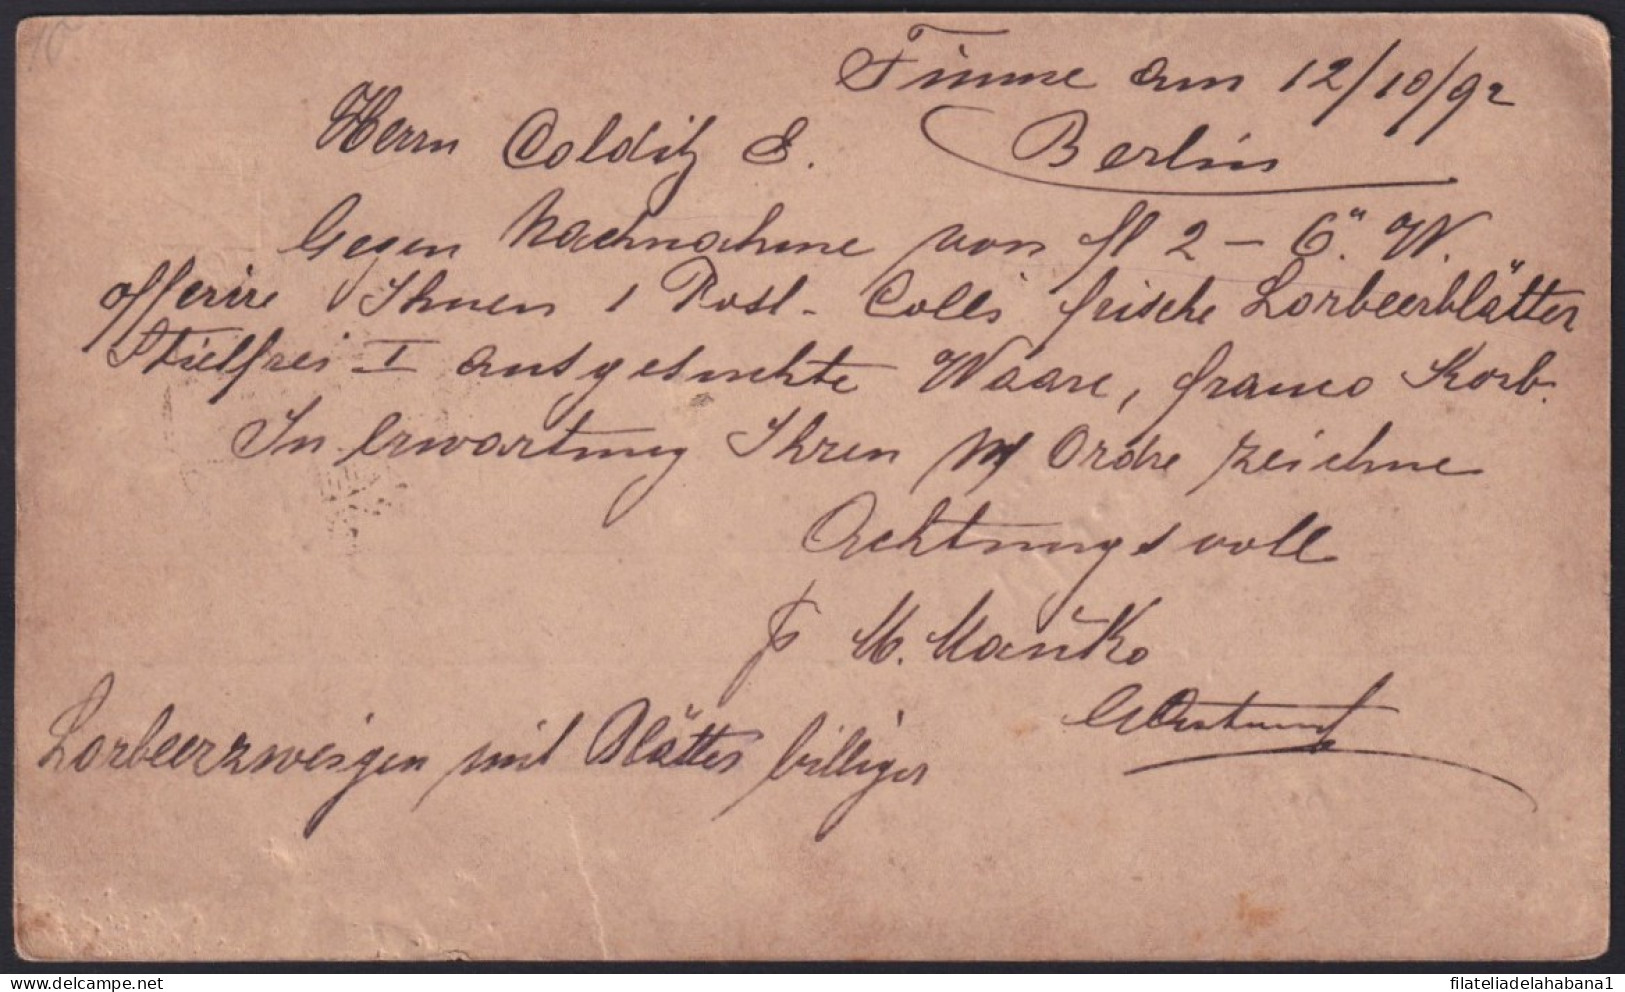 Fiume am 12/10/92
Herrn Colditz E. Berlin
Gegen Nachnahme von fl 2 – ö. W.
offerire Ihnen 1 Post-Colli frische Lorbeerblätter
Stielfrei I ausgesuchte Waare, franco Korb.
In Erwartung Ihren Ordre zeichne
Achtungsvoll
M.
Lorbeerzweigen mit Blätter billiger
filateliadelahabana1